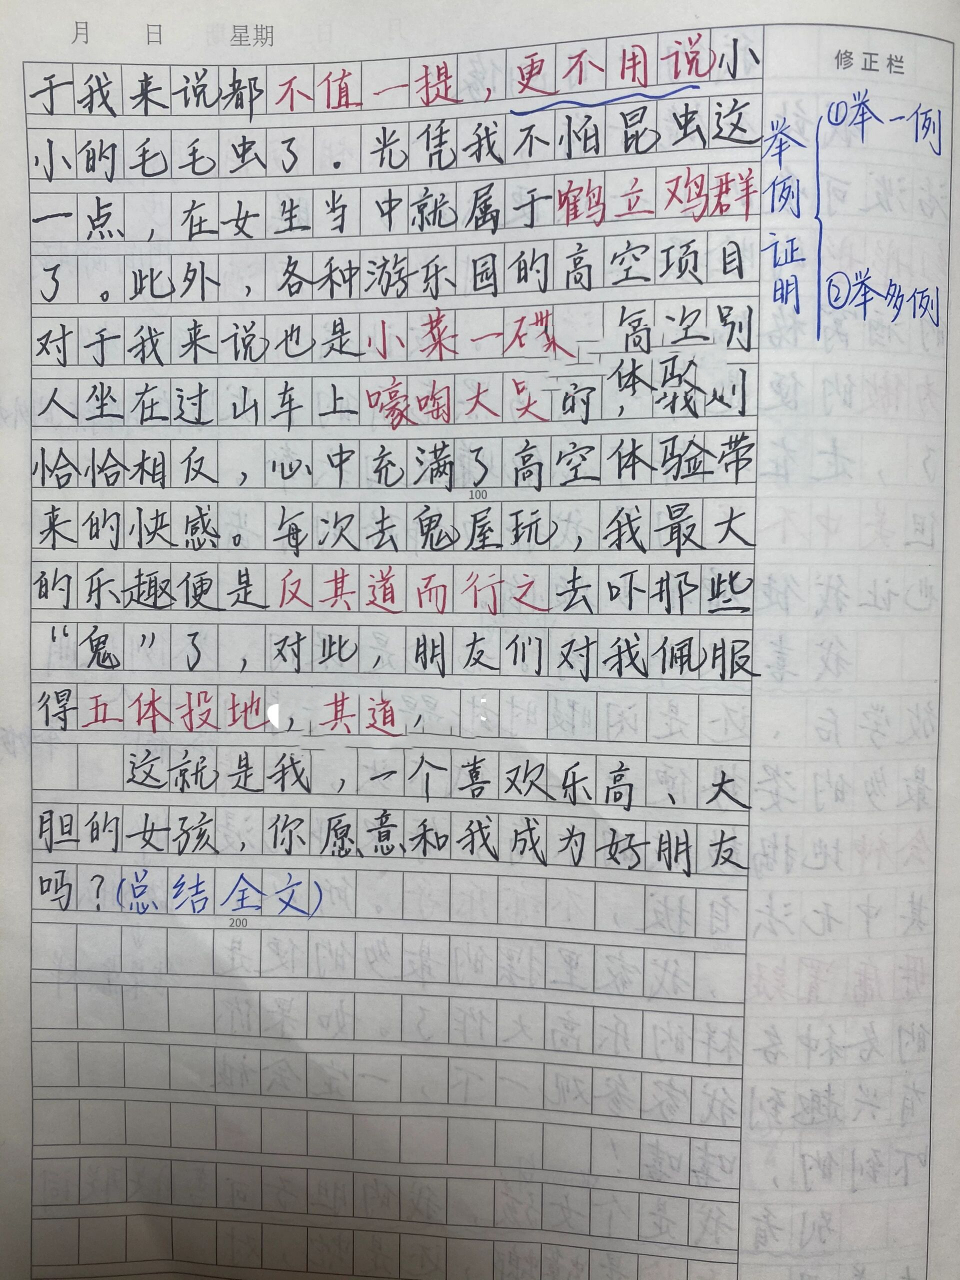 月 日 星期
修正栏
于我来说都不值一提，更不用说小
小的毛毛虫了。光凭我不怕昆虫这
一点，在女生当中就属于鹤立鸡群
了。此外，各种游乐园的高空项目
对于我来说也是小菜一碟 高次别
人坐在过山车上嚎啕大哭 的，体验 我则
恰恰相反，心中充满了高空体验带
100
来的快感。每次去鬼屋玩，我最大
的乐趣便是反其道而行之去吓那些
“鬼”了，对此，朋友们对我佩服
得五体投地，其道，
这就是我，一个喜欢乐高、大
胆的女孩，你愿意和我成为好朋友
吗？(总结全文)
200
举例证明
①举一例
②举多例